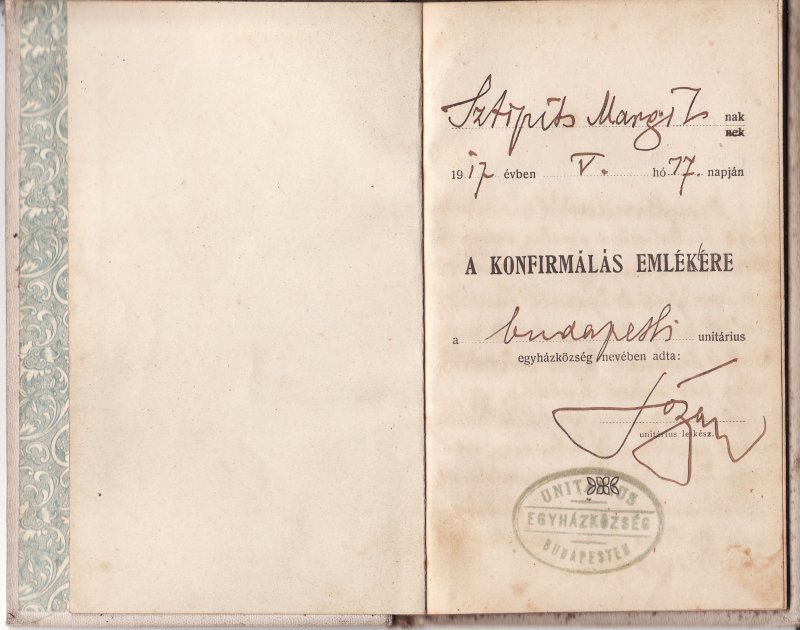 Sztipits Margit nak
nek
1917 évben V. hó 17. napján
A KONFIRMÁLÁS EMLÉKÉRE
a budapesti unitárius
egyházközség nevében adta:
Józan
unitárius lelkész.
UNITÁRIUS
EGYHÁZKÖZSÉG
BUDAPESTEN